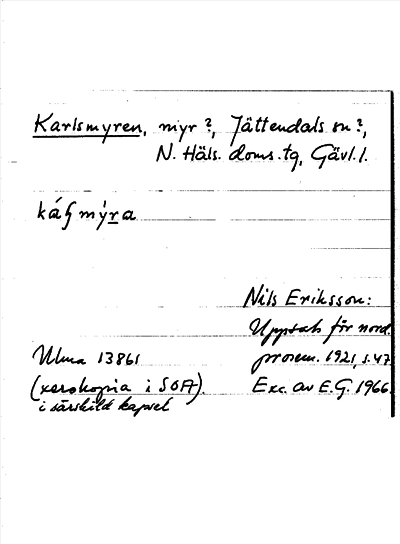 Karlsmyren, myr?, Jättendals sn?,
N. Häls. doms.tg, Gävl.l.
Nils Eriksson:
Uppsats för nord.
prosem. 1921, s.47
Exc. av E.G. 1966.
Ulma 13861
(xerokopia i SOA).
i särskild kapsel